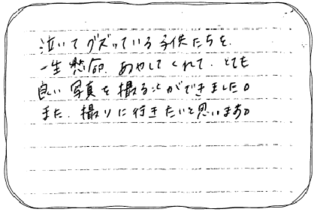 泣いてグズっている子供たちを
一生懸命 あやしてくれて、とても
良い写真を撮ることができました。
また、撮りに行きたいと思います。